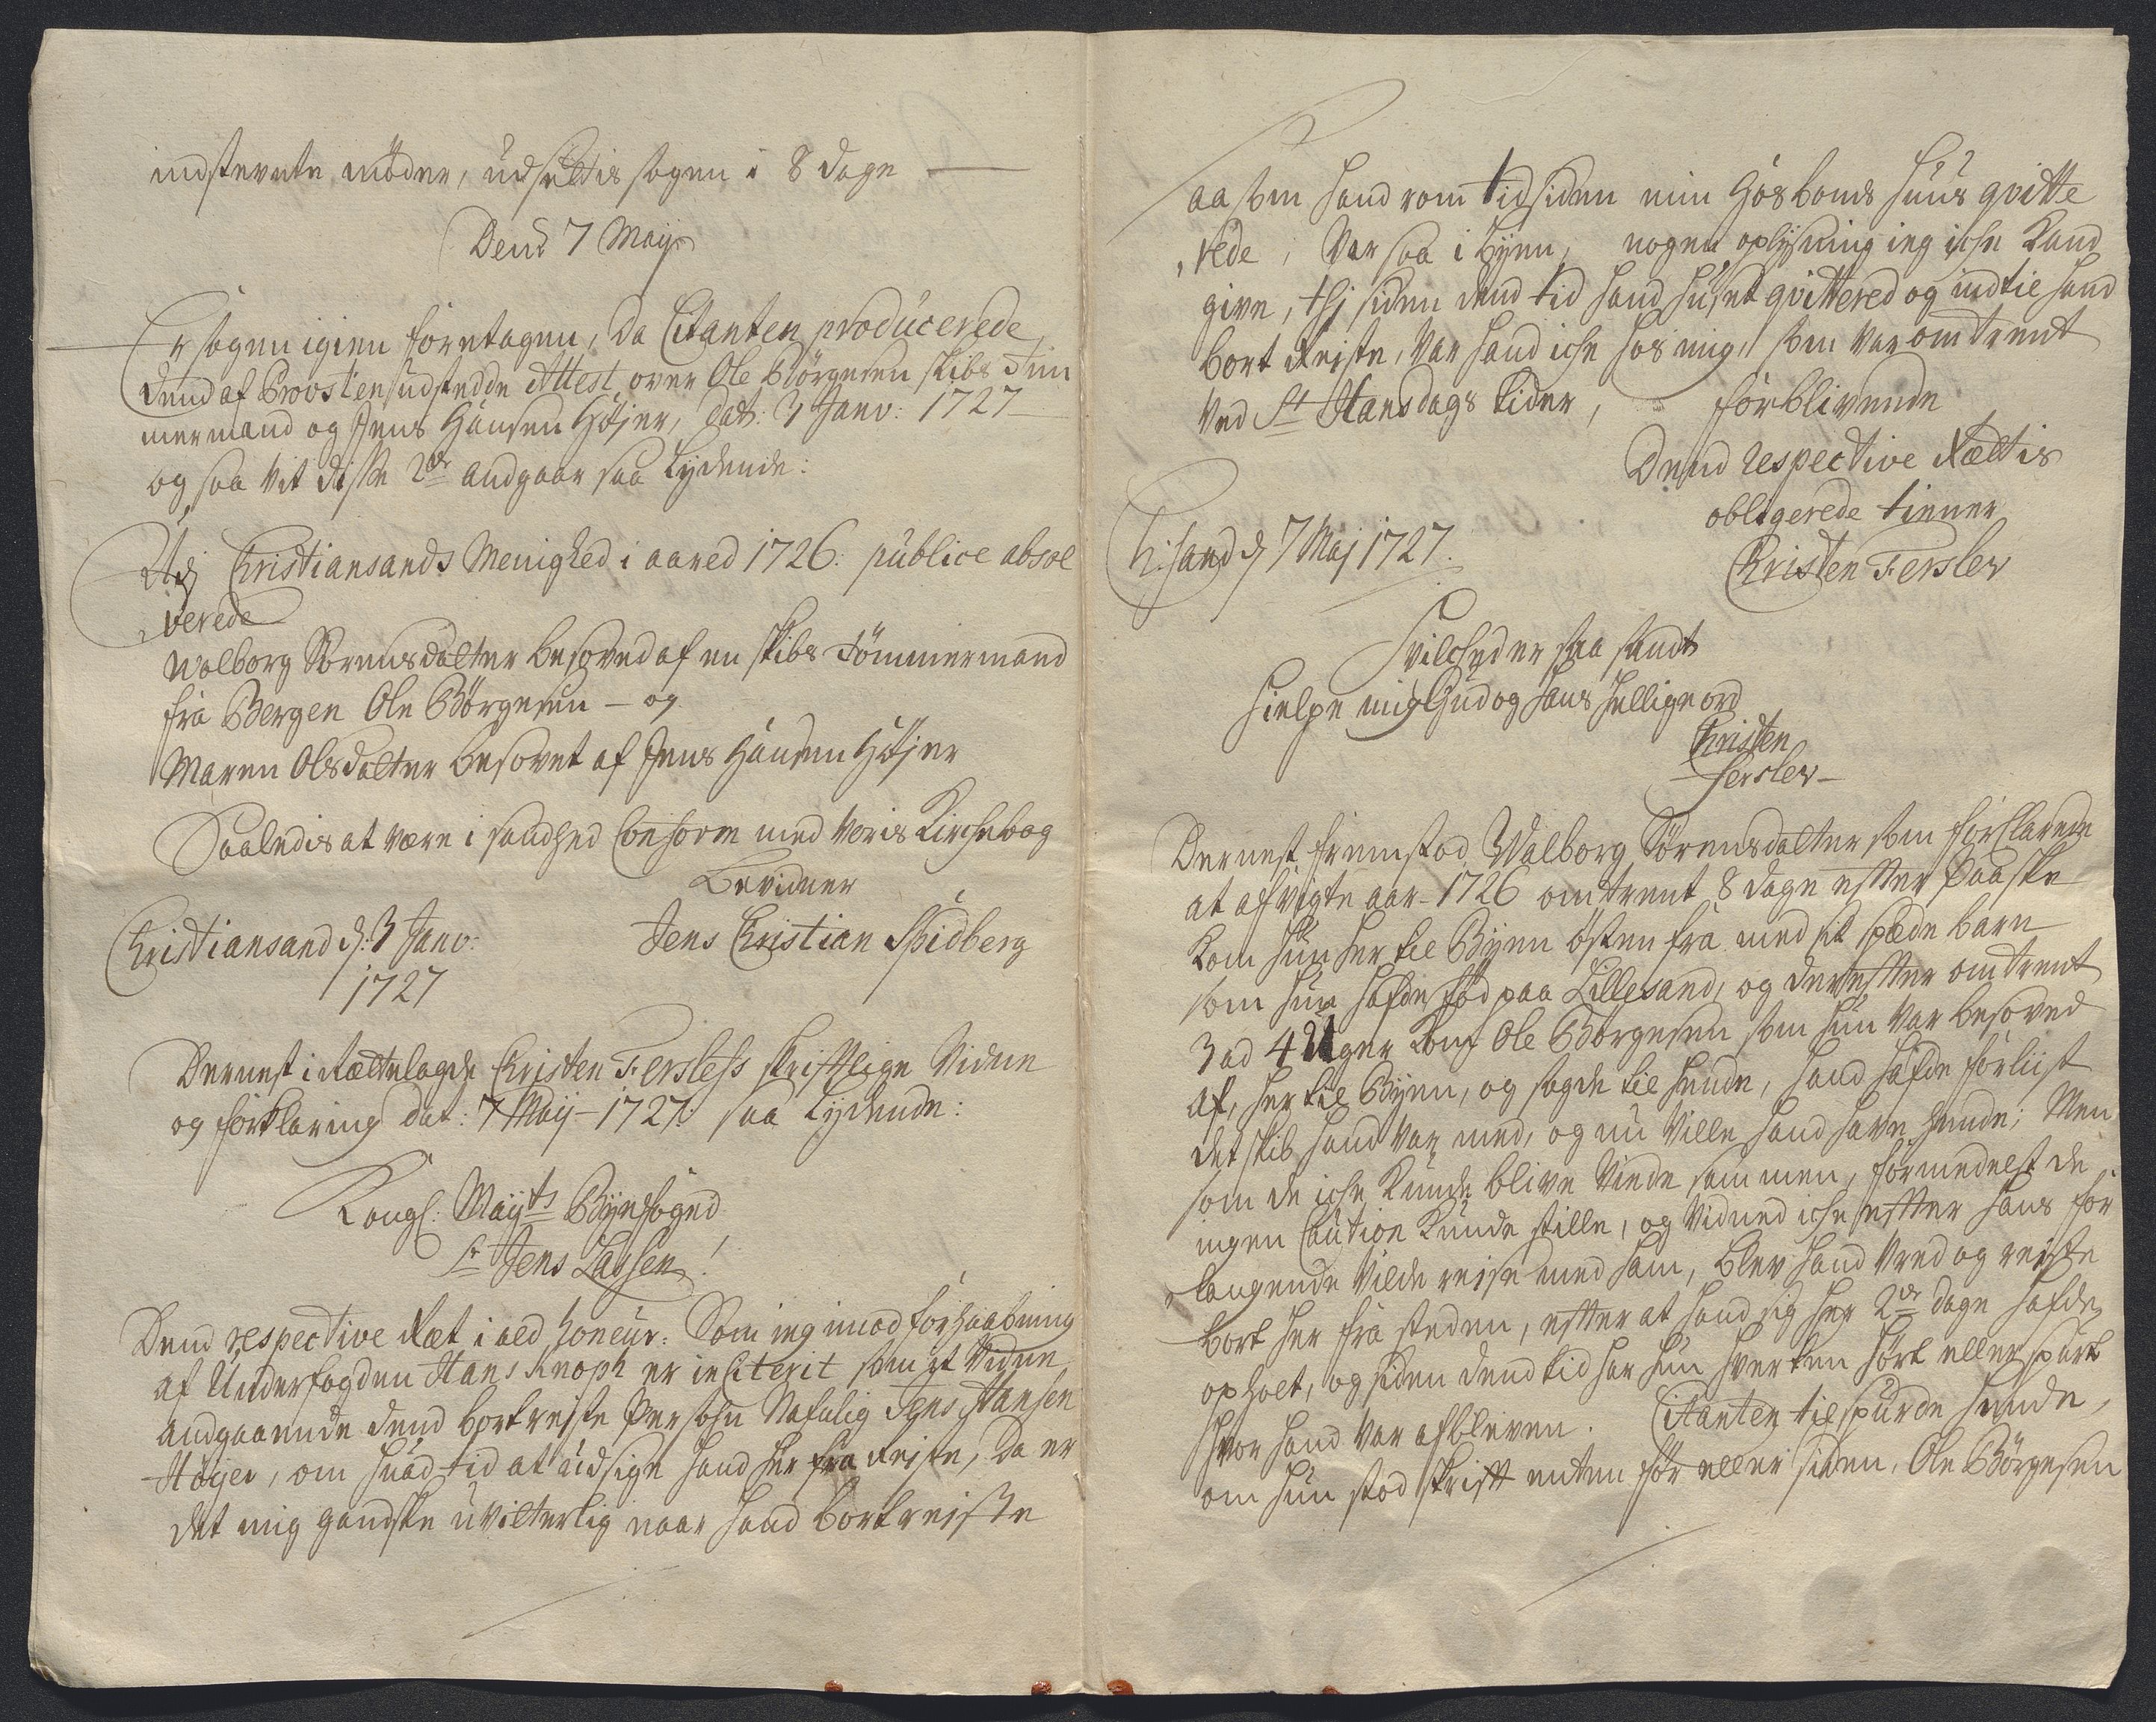 indstevnte møder, udsettis sagen i 8 dage
Dend 7 Maij
Er sagen igien foretagen, da Citanten producerede
dend af Provsten udstedde Attest over Ole Børgesen skibs Tim
mermand og Jens Hansen Høyer, dat: 3 Janv: 1727
og saa vit disse 2de andgaar saa lydende:
Udj Christiansands Menighed i aared 1726. publice absol
verede
Wolborg Sørensdatter besoved af en skibs Tømmermand
fra Bergen Ole Børgesen - og
Maren Olsdatter besovet af Jens Hansen Høyer
Saaledis at være i sandhed Conform med voris Kirchebog
Bevidner
Christiansand d: 3 Janv:
1727
Jens Christian Spidberg
Dernest i Rættelagde Christen Ferslefs skriftlige Vidne
og forklaring dat: 7 Maij 1727. saa lydende:
Kongl: Mayts Byefoged
Sr Jens Lassen!
Dend respective Ræt i ald honeur. Som jeg imod forhaabning
af Underfogden Hans Knoph er inciterit som et Vidne
andgaaende dend bortreiste Persohn Nafnlig Jens Hansen
Høyer, om hvad tid at udsige hand her fra Reiste, da er
det mig gandske uvitterlig naar hand bortreiste
aa som hand rom tid siden min Hosbonds huus qvitte
rede, Var saa i byen, nogen oplysning ieg iche Kand
give, thj siden dend tid hand huset qvittered og indtil hand
bort Reiste, Var hand iche hos mig, som var omtrent
ved St Hansdags tider, forblivende
Dend respective Rættis
obligerede tiener
Christen Ferslew
Ch:sand d 7 Maj 1727.
Hvilched er saa sandt
hielpe mig Gud og hans hellige ord
Christen
Ferslew
Dernest fremstod Wolborg Sørensdatter som forklarede
at afvigte aar 1726 omtrent 8 dage efter Paaske
kom hun her til Byen østen fra med sit spæde barn
som hun hafde fød paa Lillesand, og derefter omtrent
3 ad 4 Uger kom Ole Børgesen som hun var besoved
af, her til Byen, og sagde til hende, hand hafde forliist
det skib hand var med, og nu ville hand have hende; Men
som de iche kunde blive viede sammen, formedelst de
ingen Caution kunde stille, og Vidned iche efter hans for
langende vilde reise med ham, blev hand vred og reiste
bort her fra steden, efter at hand sig her 2de dage hafde
opholt, og siden dend tid har hun hverken hørt eller spurt
hvor hand var afbleven. Citanten tilspurde hende,
om hun stod skrift enten før eller siden, Ole Børgesen